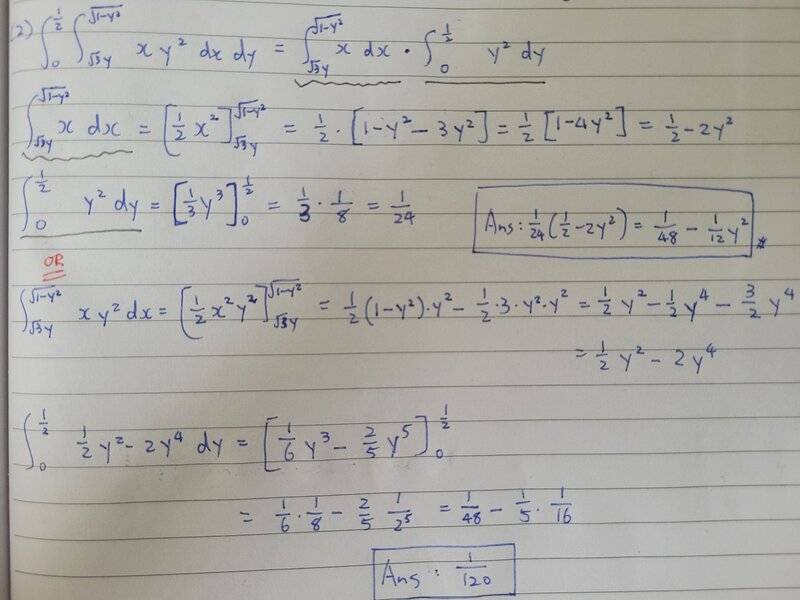 2) ∫₀^{1/2} ∫_{√3y}^{√1-y²} x y² dx dy = ∫_{√3y}^{√1-y²} x dx · ∫₀^{1/2} y² dy
∫_{√3y}^{√1-y²} x dx = [1/2 x²]_{√3y}^{√1-y²} = 1/2 · [1-y² - 3y²] = 1/2 [1-4y²] = 1/2 - 2y²
∫₀^{1/2} y² dy = [1/3 y³]₀^{1/2} = 1/3 · 1/8 = 1/24
Ans: 1/24 (1/2 - 2y²) = 1/48 - 1/12 y²
OR
∫_{√3y}^{√1-y²} x y² dx = [1/2 x² y²]_{√3y}^{√1-y²} = 1/2 (1-y²)·y² - 1/2 · 3 · y² · y² = 1/2 y² - 1/2 y⁴ - 3/2 y⁴
= 1/2 y² - 2y⁴
∫₀^{1/2} 1/2 y² - 2y⁴ dy = [1/6 y³ - 2/5 y⁵]₀^{1/2}
= 1/6 · 1/8 - 2/5 1/2⁵ = 1/48 - 1/5 · 1/16
Ans : 1/120